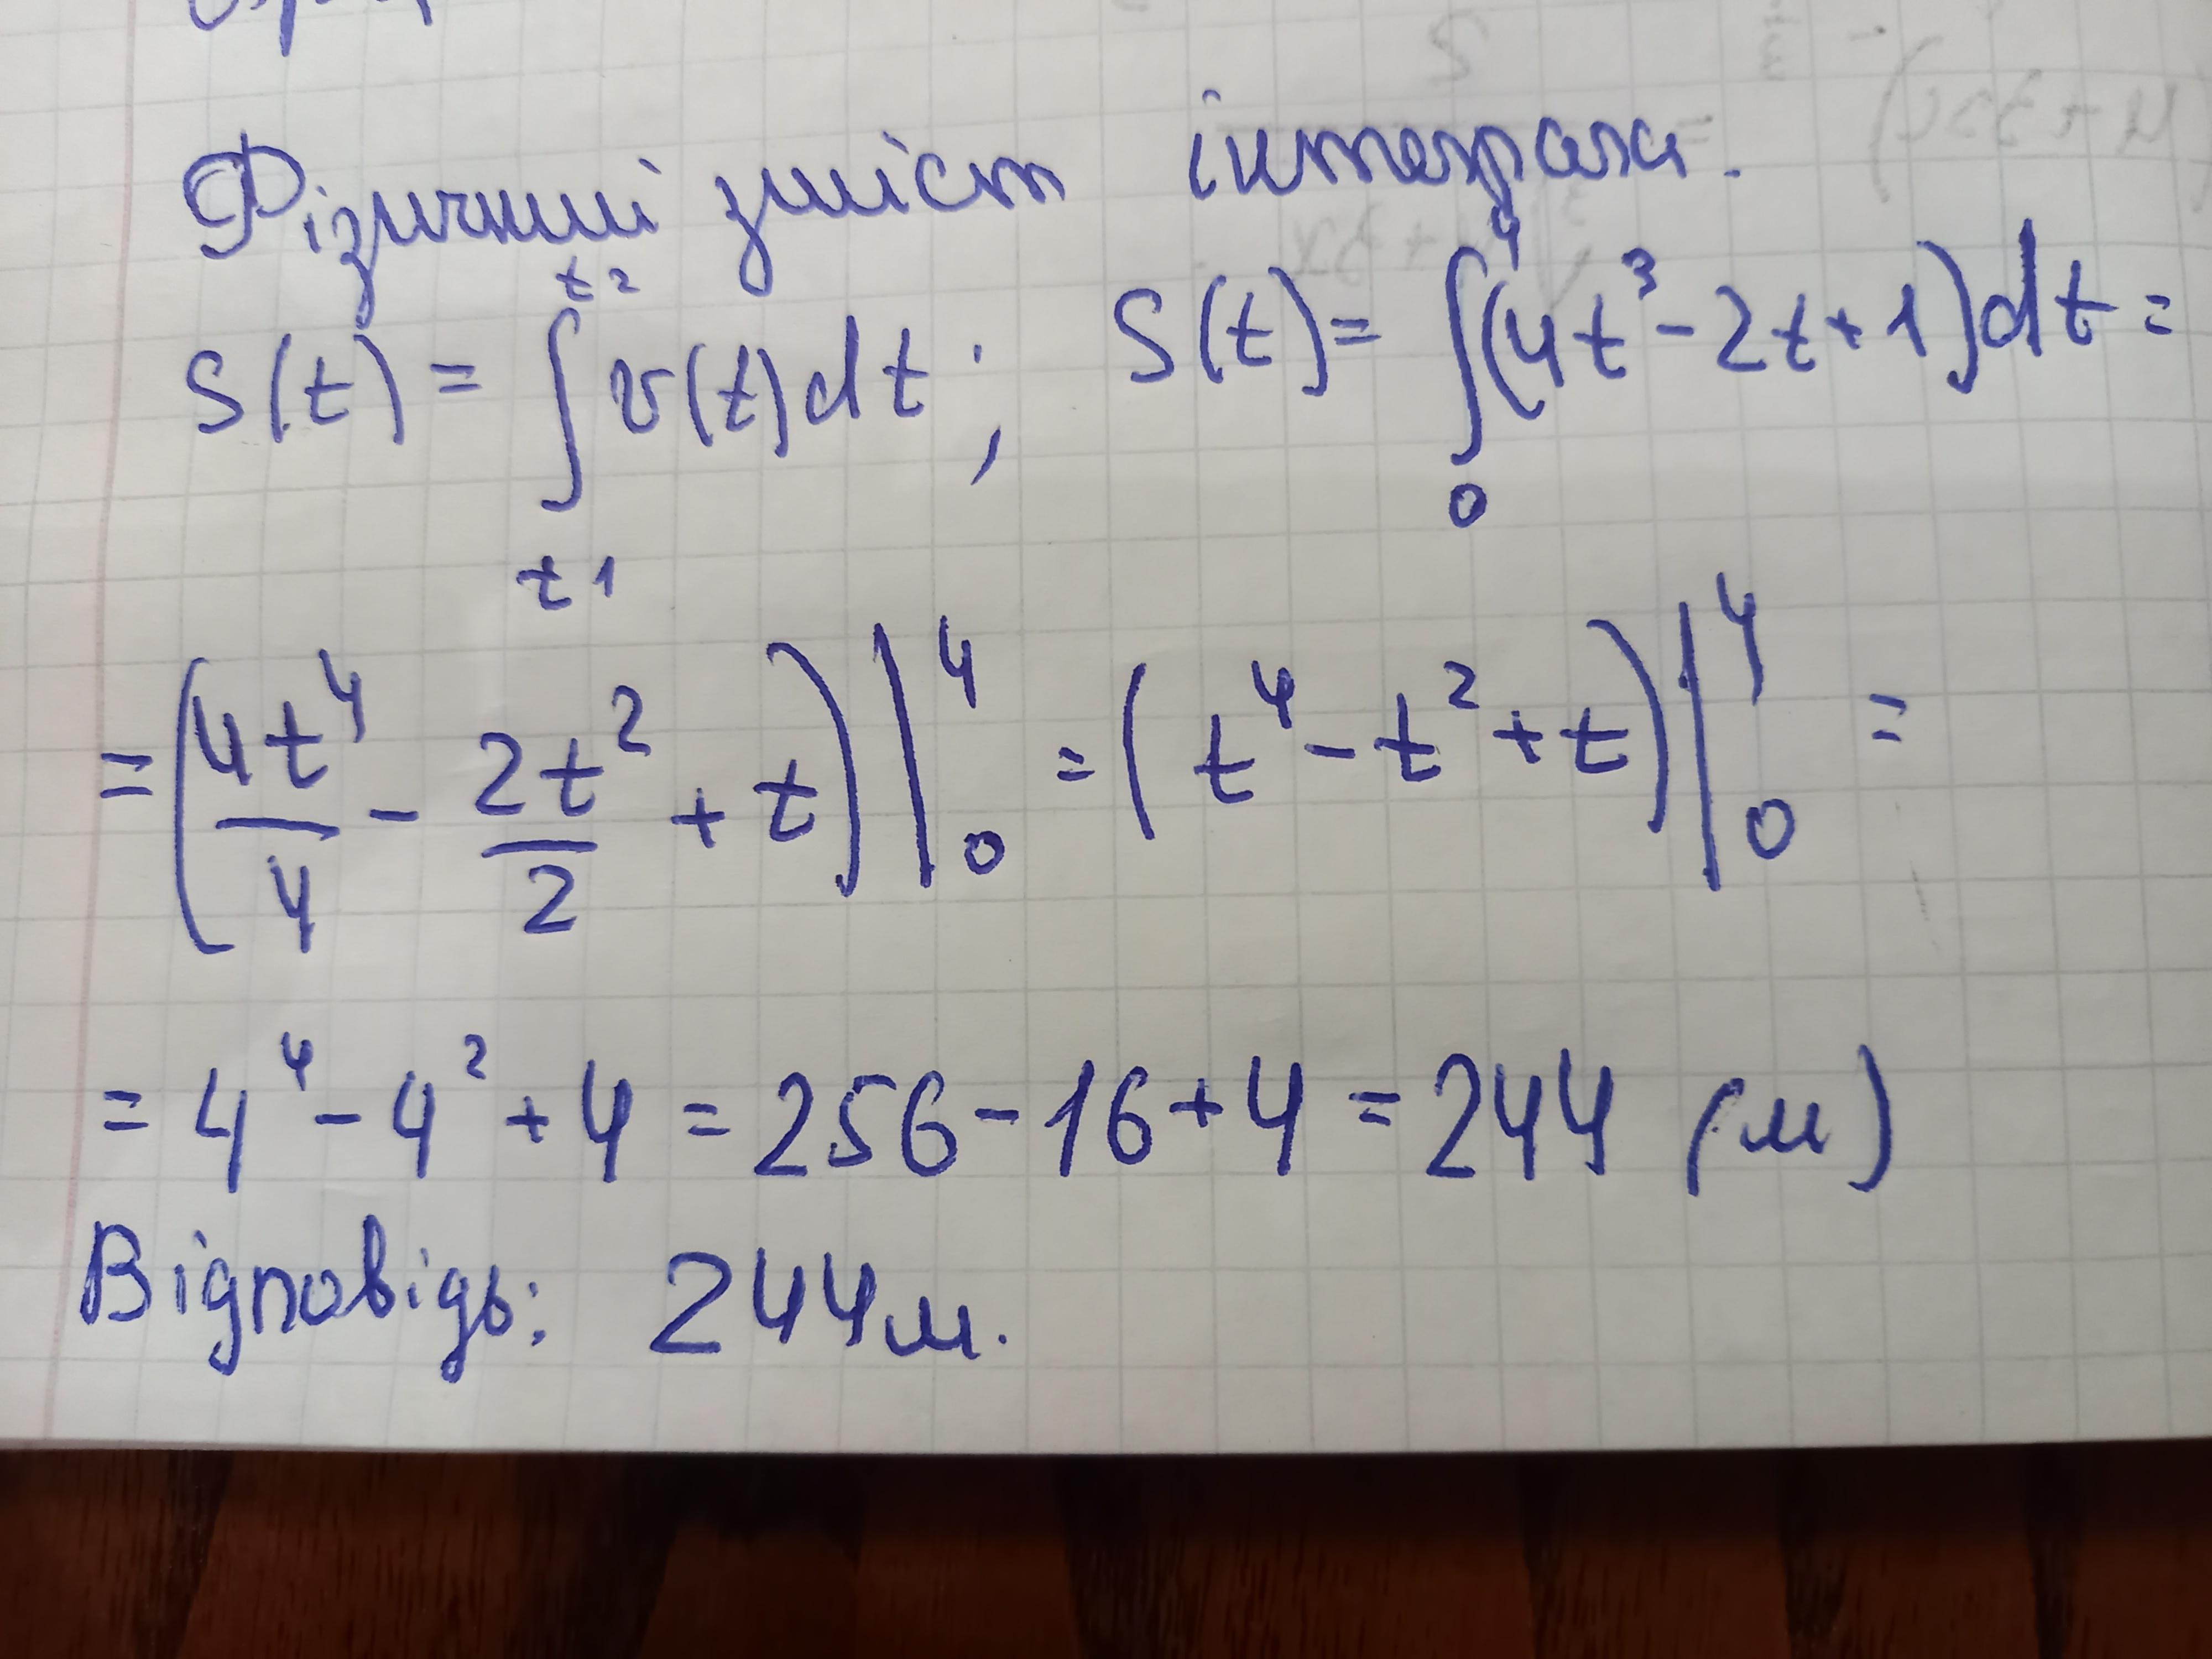 Фізичний зміст інтеграла.
S(t) = ∫_{t1}^{t2} v(t)dt; S(t) = ∫_0^4 (4t³ - 2t + 1)dt =
= (4t⁴/4 - 2t²/2 + t)|_0^4 = (t⁴ - t² + t)|_0^4 =
= 4⁴ - 4² + 4 = 256 - 16 + 4 = 244 (м)
Відповідь: 244м.